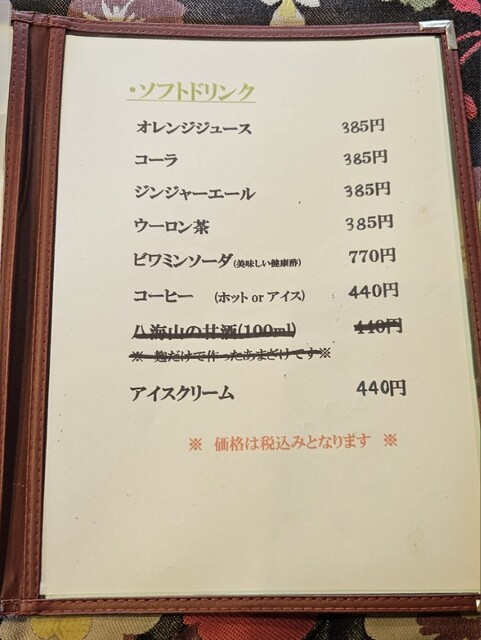 ・ソフトドリンク
オレンジジュース 385円
コーラ 385円
ジンジャーエール 385円
ウーロン茶 385円
ビワミンソーダ(美味しい健康酢) 770円
コーヒー (ホット or アイス) 440円
八海山の甘酒(100ml) 440円
※ 麹だけで作ったあまざけです※
アイスクリーム 440円
※ 価格は税込みとなります ※